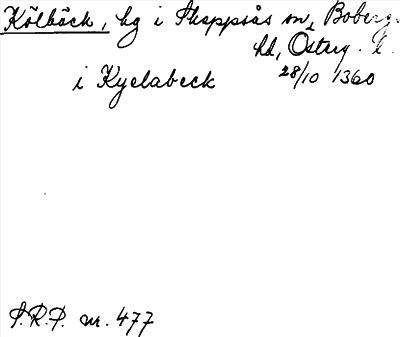 Kölbäck, hg i Skeppsås sn, Boberg.
hd, Österg. l.
i Kyelabeck 28/10 1360
S.R.P. nr. 477